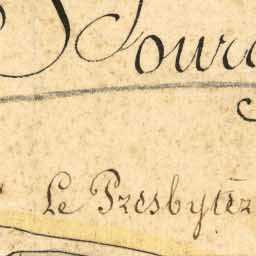 Pour
Le Presbyter